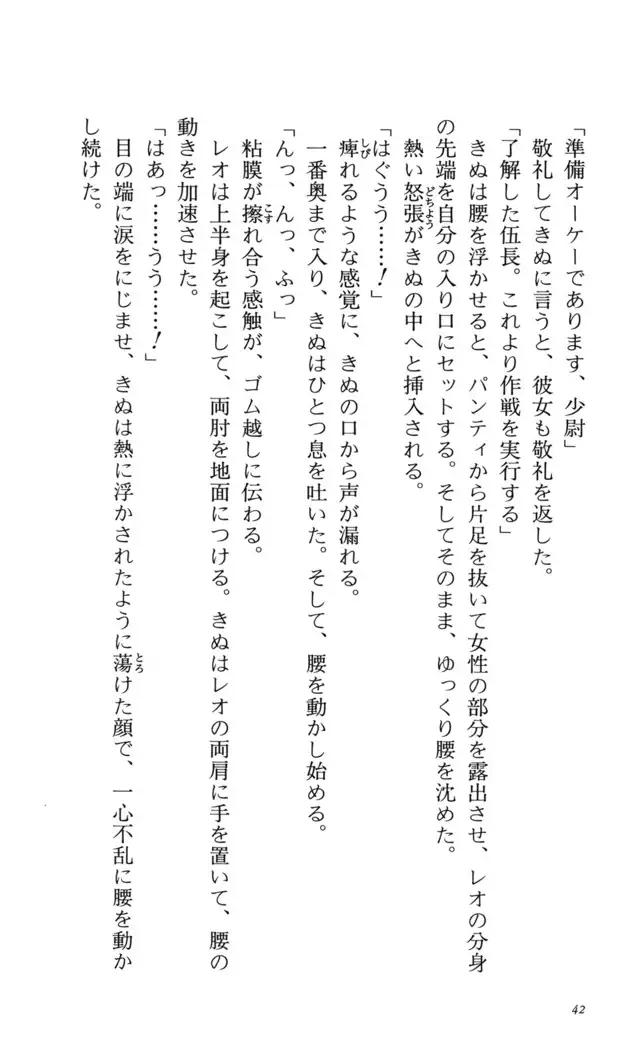 「準備オーケーであります、少尉」
敬礼してきぬに言うと、彼女も敬礼を返した。
「了解した伍長。これより作戦を実行する」
きぬは腰を浮かせると、パンティから片足を抜いて女性の部分を露出させ、レオの分身
の先端を自分の入り口にセットする。そしてそのまま、ゆっくり腰を沈めた。
熱い怒張がきぬの中へと挿入される。
「はぐうう……！」
痺れるような感覚に、きぬの口から声が漏れる。
一番奥まで入り、きぬはひとつ息を吐いた。そして、腰を動かし始める。
「んっ、んっ、ふっ」
粘膜が擦れ合う感触が、ゴム越しに伝わる。
レオは上半身を起こして、両肘を地面につける。きぬはレオの両肩に手を置いて、腰の
動きを加速させた。
「はあっ……うう……！」
目の端に涙をにじませ、きぬは熱に浮かされたように蕩けた顔で、一心不乱に腰を動か
し続けた。
42